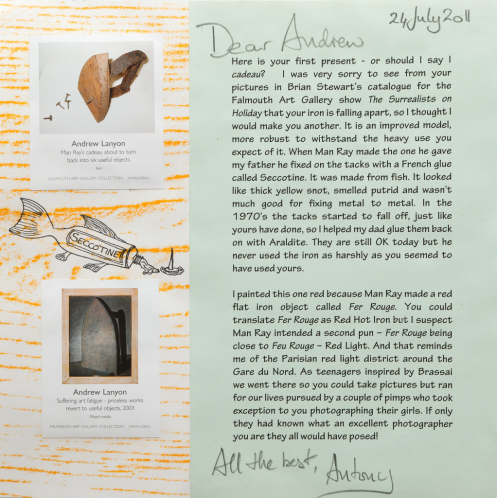 24 July 2011
Dear Andrew
Here is your first present - or should I say I
cadeau? I was very sorry to see from your
pictures in Brian Stewart's catalogue for the
Falmouth Art Gallery show The Surrealists on
Holiday that your iron is falling apart, so I thought I
would make you another. It is an improved model,
more robust to withstand the heavy use you
expect of it. When Man Ray made the one he gave
my father he fixed on the tacks with a French glue
called Seccotine. It was made from fish. It looked
like thick yellow snot, smelled putrid and wasn't
much good for fixing metal to metal. In the
1970's the tacks started to fall off, just like
yours have done, so I helped my dad glue them back
on with Araldite. They are still OK today but he
never used the iron as harshly as you seemed to
have used yours.
I painted this one red because Man Ray made a red
flat iron object called Fer Rouge. You could
translate Fer Rouge as Red Hot Iron but I suspect
Man Ray intended a second pun – Fer Rouge being
close to Feu Rouge – Red Light. And that reminds
me of the Parisian red light district around the
Gare du Nord. As teenagers inspired by Brassai
we went there so you could take pictures but ran
for our lives pursued by a couple of pimps who took
exception to you photographing their girls. If only
they had known what an excellent photographer
you are they all would have posed!
All the best, Antony
Andrew Lanyon
Man Ray's cadeau about to turn
back into six useful objects
FALMOUTH ART GALLERY COLLECTION
SECCOTINE
Andrew Lanyon
Suffering art fatigue - priceless works
revert to useful objects, 2003
Mixed media
FALMOUTH ART GALLERY COLLECTION